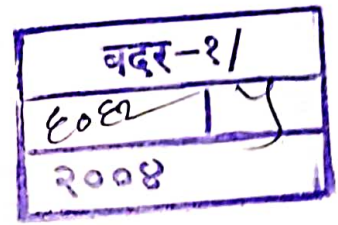 वदर-१/
६०६२ | ५
२००४